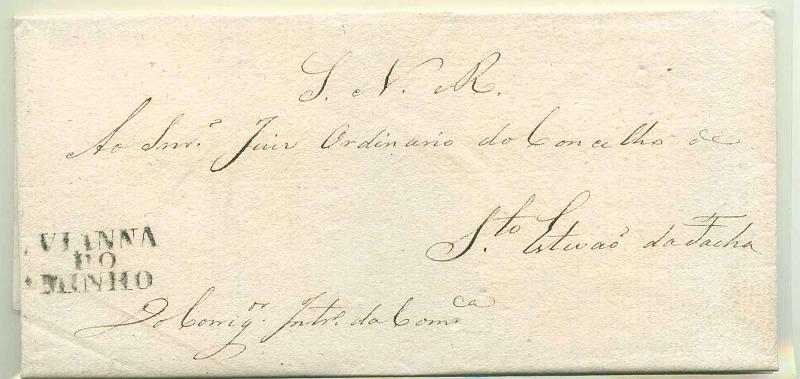 S. N. R.
Ao Snr. Juiz Ordinario do Concelho de
Sto. Estevaõ da Facha
VIANNA
DO
MINHO
Do Correigor. Intro. da Comca.